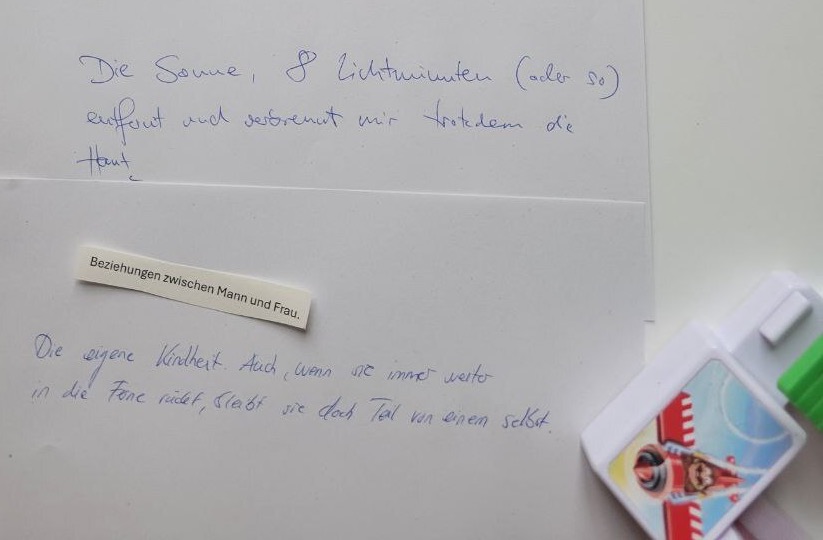 Die Sonne, 8 Lichtminuten (oder so)
entfernt und verbrennt mir trotzdem die
Haut.
Beziehungen zwischen Mann und Frau.
Die eigene Kindheit. Auch, wenn sie immer weiter
in die Ferne rückt, bleibt sie doch Teil von einem selbst.